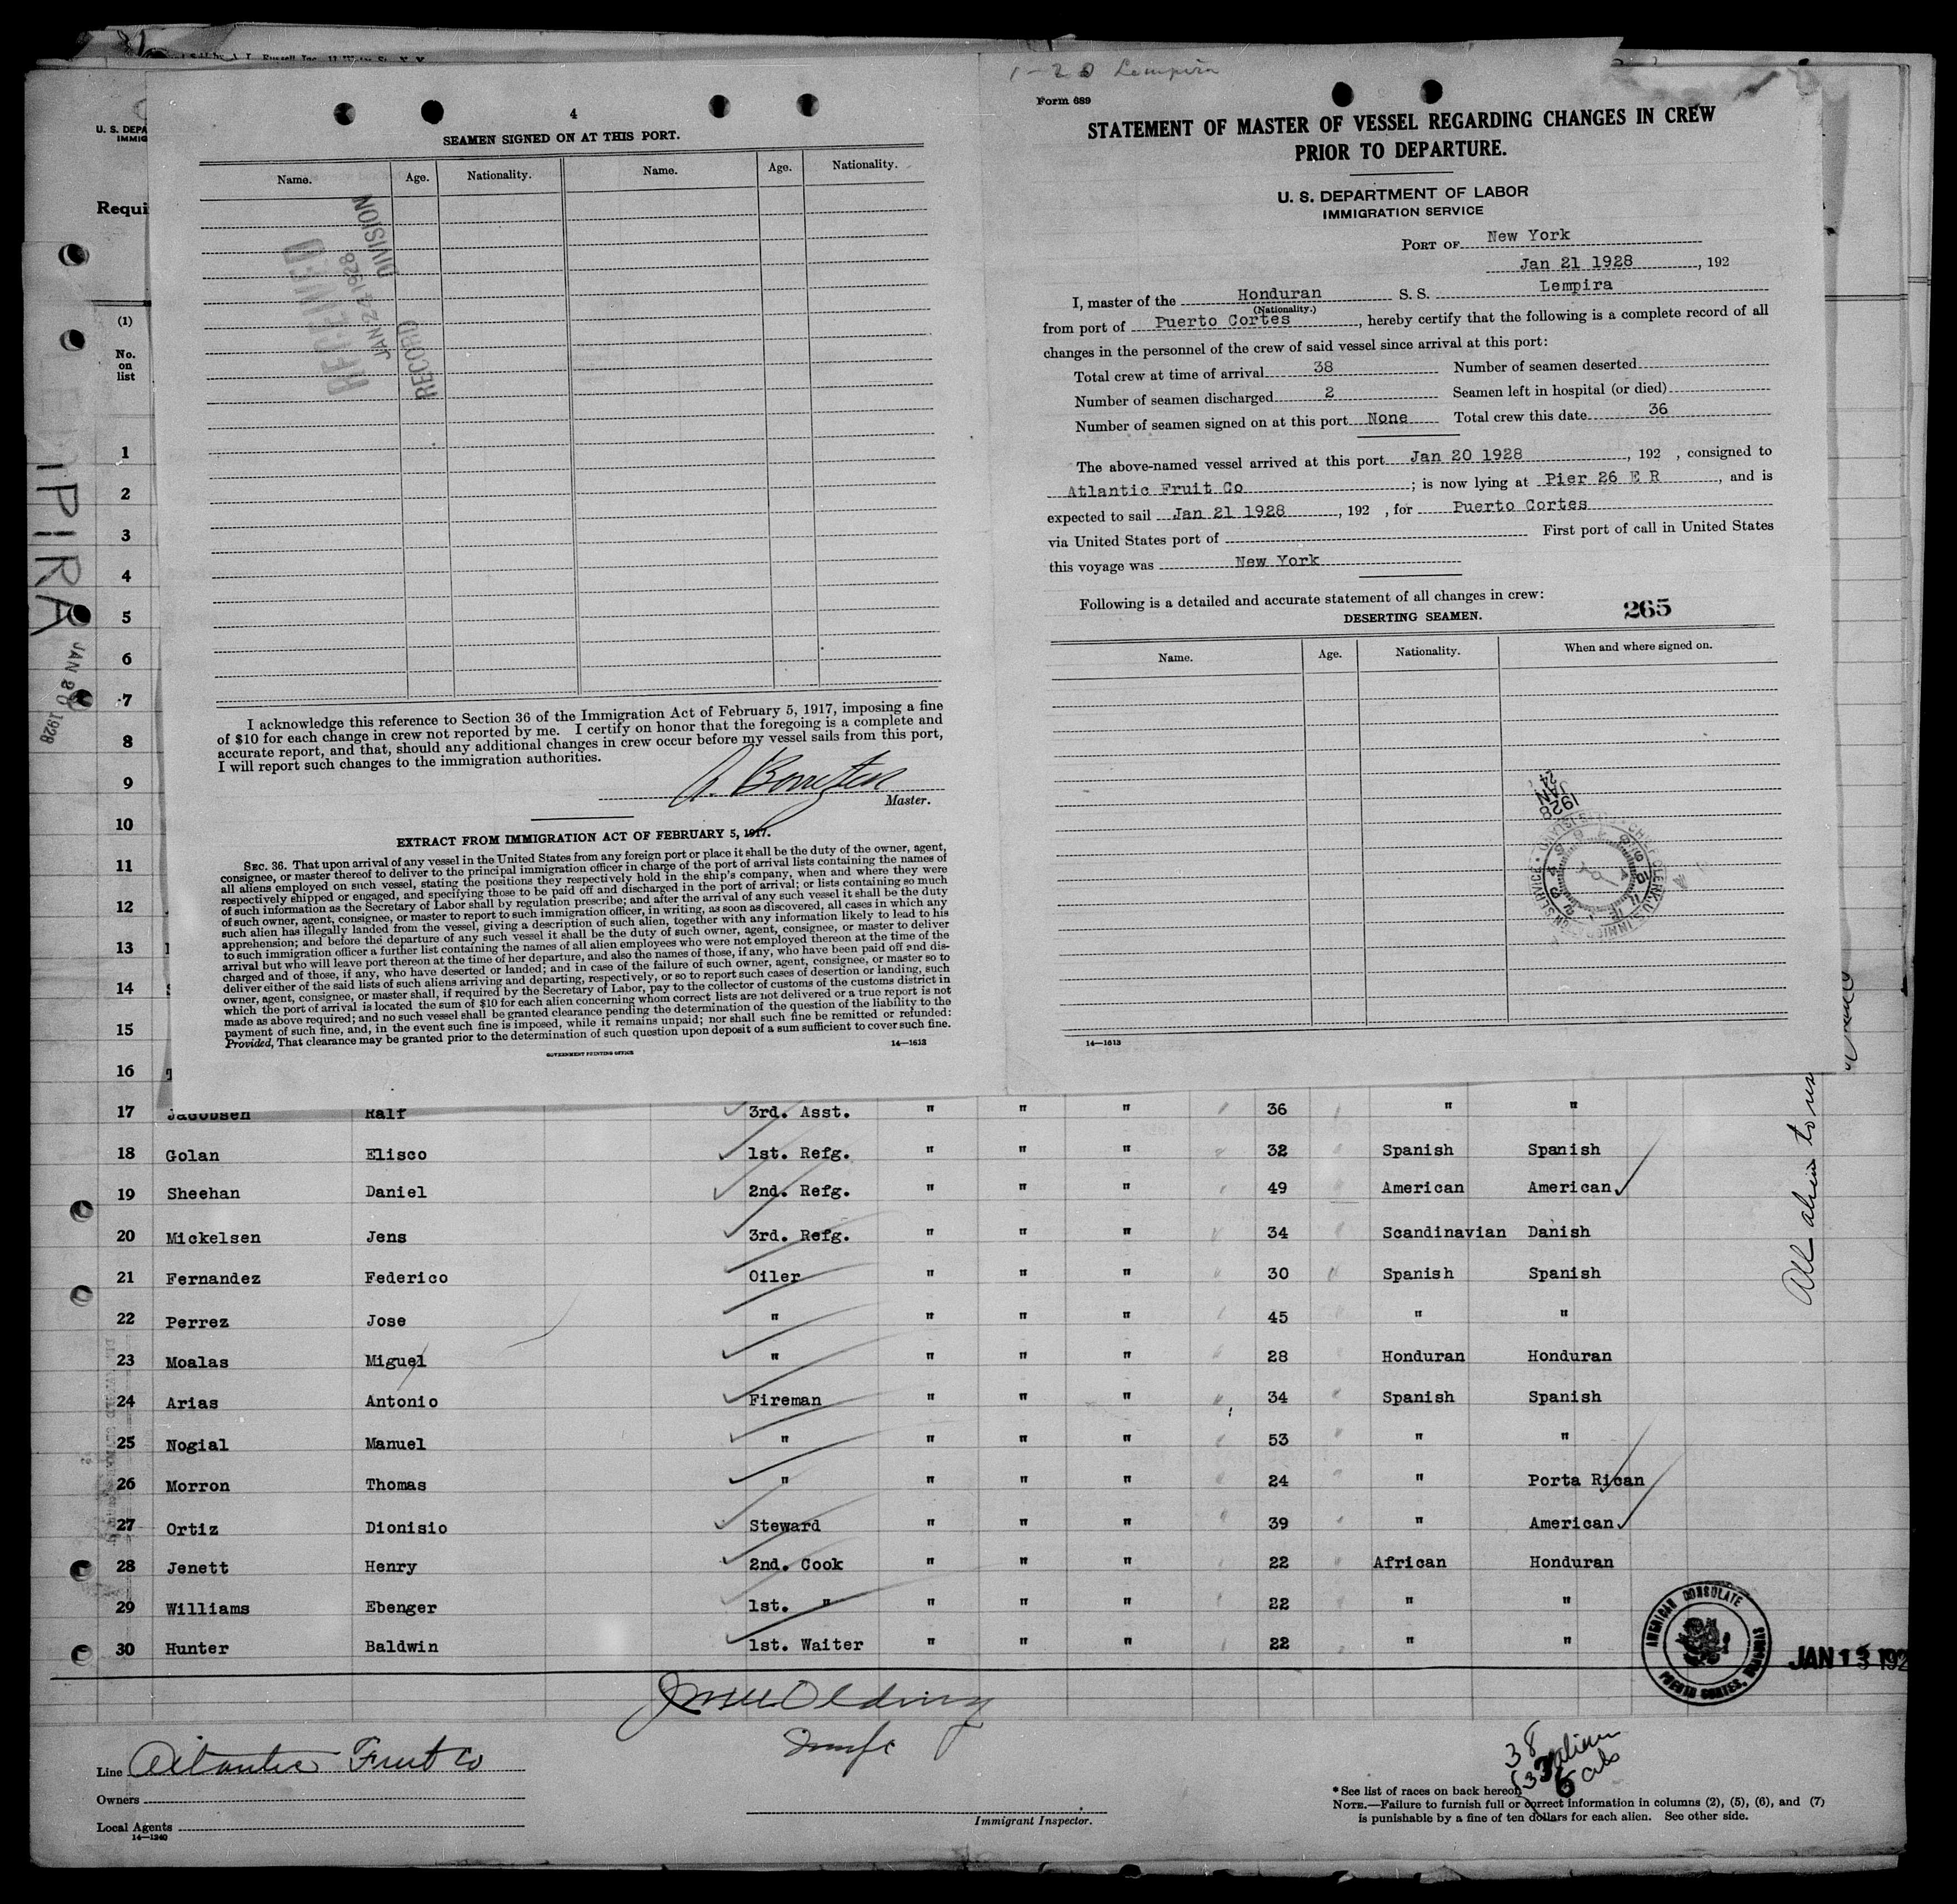 1-20 Lempira
4
SEAMEN SIGNED ON AT THIS PORT.
Name. Age. Nationality. Name. Age. Nationality.
RECORD
DIVISION
I acknowledge this reference to Section 36 of the Immigration Act of February 5, 1917, imposing a fine
of $10 for each change in crew not reported by me. I certify on honor that the foregoing is a complete and
accurate report, and that, should any additional changes in crew occur before my vessel sails from this port,
I will report such changes to the immigration authorities.
Master.
EXTRACT FROM IMMIGRATION ACT OF FEBRUARY 5, 1917.
SEC. 36. That upon arrival of any vessel in the United States from any foreign port or place it shall be the duty of the owner, agent,
consignee, or master thereof to deliver to the principal immigration officer in charge of the port of arrival lists containing the names of
all aliens employed on such vessel, stating the positions they respectively hold in the ship's company, when and where they were
respectively shipped or engaged, and specifying those to be paid off and discharged in the port of arrival; or lists containing so much
of such information as the Secretary of Labor shall by regulation prescribe; and after the arrival of any such vessel it shall be the duty
of such owner, agent, consignee, or master to report to such immigration officer, in writing, as soon as discovered, all cases in which any
such alien has illegally landed from the vessel, giving a description of such alien, together with any information likely to lead to his
apprehension; and before the departure of any such vessel it shall be the duty of such owner, agent, consignee, or master to deliver
to such immigration officer a further list containing the names of all alien employees who were not employed thereon at the time of the
arrival but who will leave port thereon at the time of her departure, and also the names of those, if any, who have been paid off and dis-
charged and of those, if any, who have deserted or landed; and in case of the failure of such owner, agent, consignee, or master so to
deliver either of the said lists of such aliens arriving and departing, respectively, or so to report such cases of desertion or landing, such
owner, agent, consignee, or master shall, if required by the Secretary of Labor, pay to the collector of customs of the customs district in
which the port of arrival is located the sum of $10 for each alien concerning whom correct lists are not delivered or a true report is not
made as above required; and no such vessel shall be granted clearance pending the determination of the question of the liability to the
payment of such fine, and, in the event such fine is imposed, while it remains unpaid; nor shall such fine be remitted or refunded:
Provided, That clearance may be granted prior to the determination of such question upon deposit of a sum sufficient to cover such fine.
GOVERNMENT PRINTING OFFICE 14—1613
Form 689
STATEMENT OF MASTER OF VESSEL REGARDING CHANGES IN CREW
PRIOR TO DEPARTURE.
U. S. DEPARTMENT OF LABOR
IMMIGRATION SERVICE
PORT OF New York
Jan 21 1928, 192
I, master of the Honduran S. S. Lempira
(Nationality.)
from port of Puerto Cortes, hereby certify that the following is a complete record of all
changes in the personnel of the crew of said vessel since arrival at this port:
Total crew at time of arrival 38 Number of seamen deserted
Number of seamen discharged 2 Seamen left in hospital (or died)
Number of seamen signed on at this port None Total crew this date 36
The above-named vessel arrived at this port Jan 20 1928, 192 , consigned to
Atlantic Fruit Co ; is now lying at Pier 26 E R, and is
expected to sail Jan 21 1928, 192 , for Puerto Cortes
via United States port of First port of call in United States
this voyage was New York
Following is a detailed and accurate statement of all changes in crew:
DESERTING SEAMEN. 265
Name. Age. Nationality. When and where signed on.
1928
JAN
24
14—1613
U. S. DEPA
IMMIG
Requi
(1)
No.
on
list
IPIRA
JAN 20 1928
1
2
3
4
5
6
7
8
9
10
11
12
13
14
15
16
17 Jacobsen Ralf 3rd. Asst. " " " 36 " "
18 Golan Elisco 1st. Refg. " " " 32 Spanish Spanish
19 Sheehan Daniel 2nd. Refg. " " " 49 American American
20 Mickelsen Jens 3rd. Refg. " " " 34 Scandinavian Danish
21 Fernandez Federico Oiler " " " 30 Spanish Spanish
22 Perrez Jose " " " " 45 " "
23 Moalas Miguel " " " " 28 Honduran Honduran
24 Arias Antonio Fireman " " " 34 Spanish Spanish
25 Nogial Manuel " " " " 53 " "
26 Morron Thomas " " " " 24 " Porta Rican
27 Ortiz Dionisio Steward " " " 39 " American
28 Jenett Henry 2nd. Cook " " " 22 African Honduran
29 Williams Ebenger 1st. " " " " 22 " "
30 Hunter Baldwin 1st. Waiter " " " 22 " "
AMERICAN CONSULATE
PUERTO CORTES, HONDURAS
JAN 13 192
Line Atlantic Fruit Co
Owners
Local Agents
14—1240
Immigrant Inspector.
38
* See list of races on back hereof.
NOTE.—Failure to furnish full or correct information in columns (2), (5), (6), and (7)
is punishable by a fine of ten dollars for each alien. See other side.